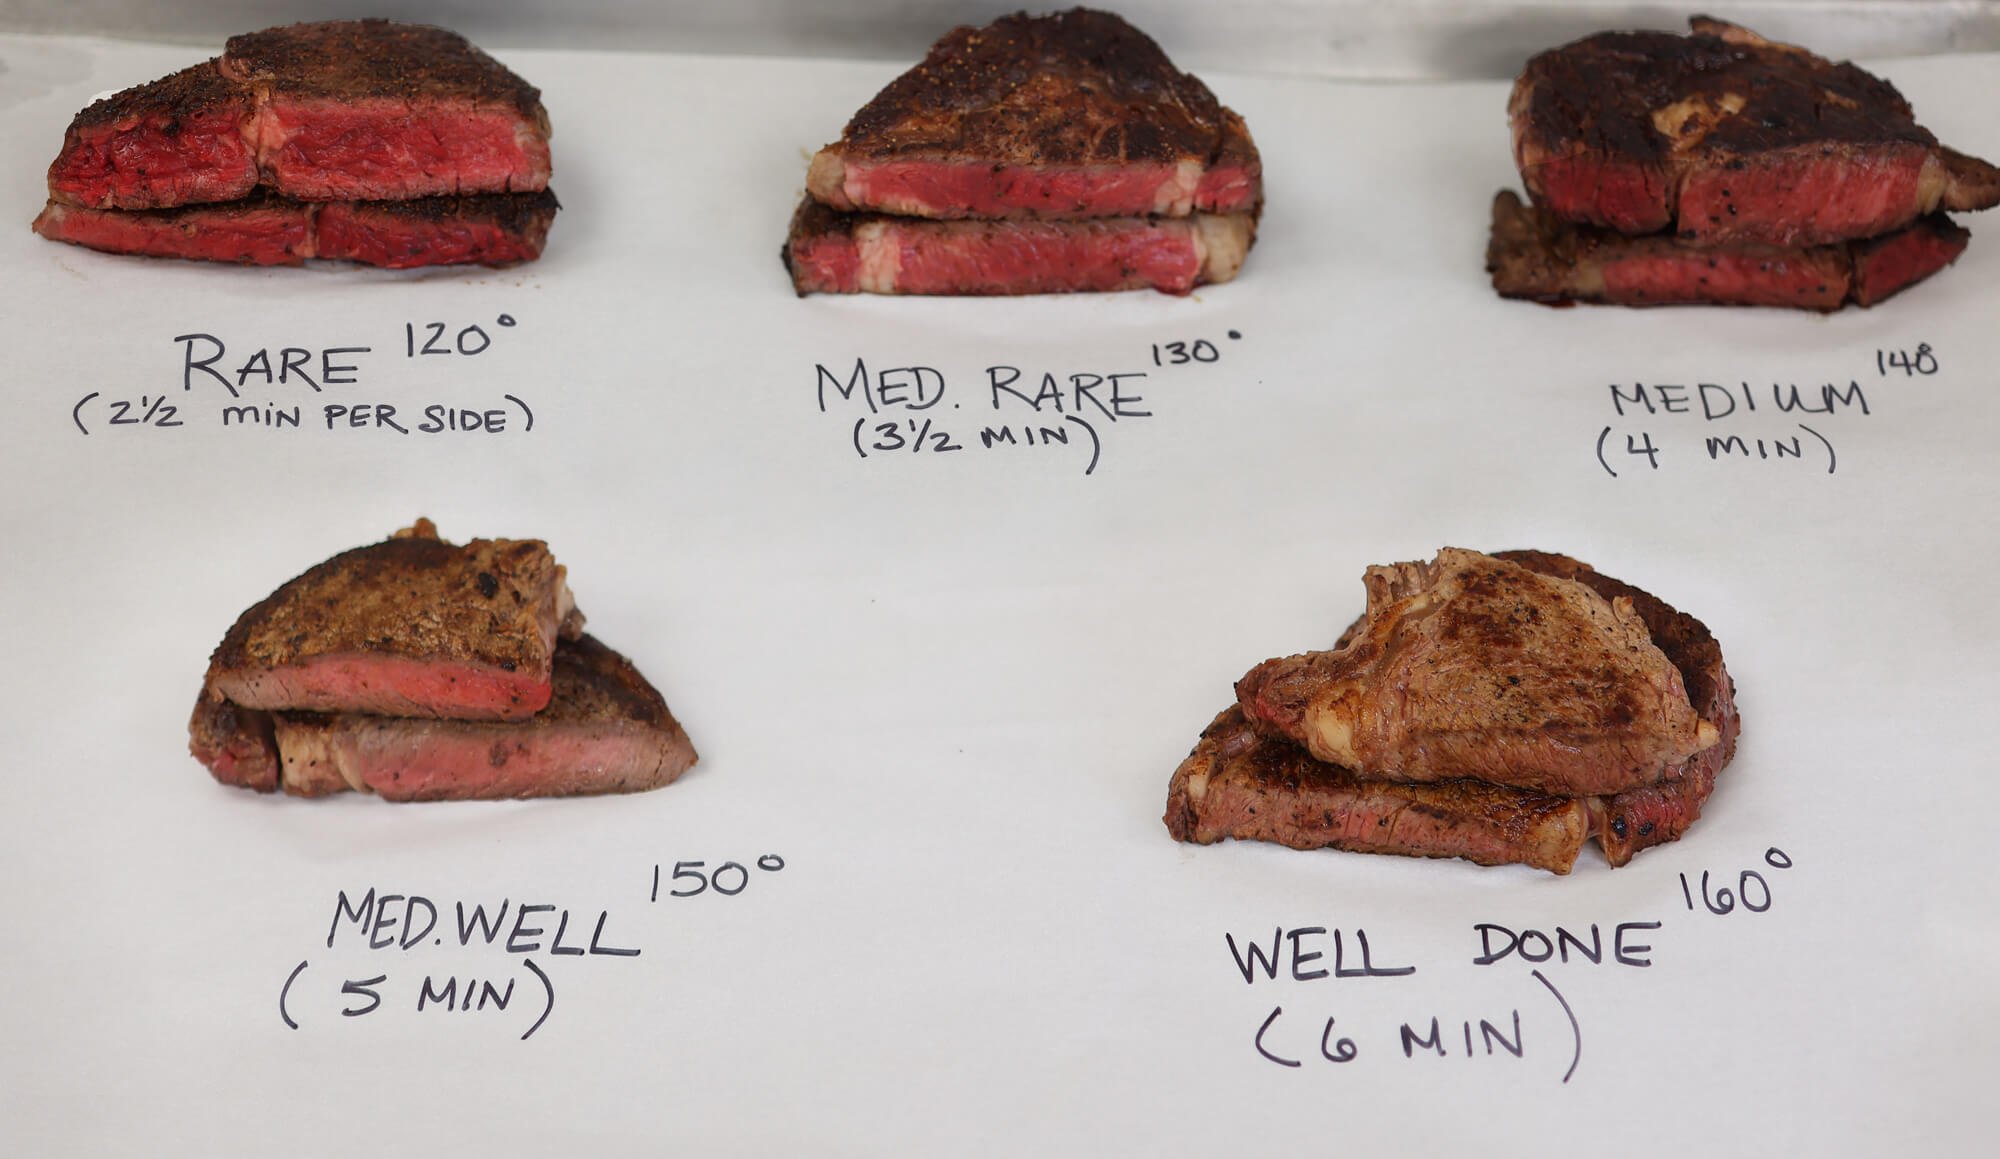 RARE 120°
(2½ MIN PER SIDE)
MED. RARE 130°
(3½ MIN)
MEDIUM 140°
(4 MIN)
MED. WELL 150°
(5 MIN)
WELL DONE 160°
(6 MIN)